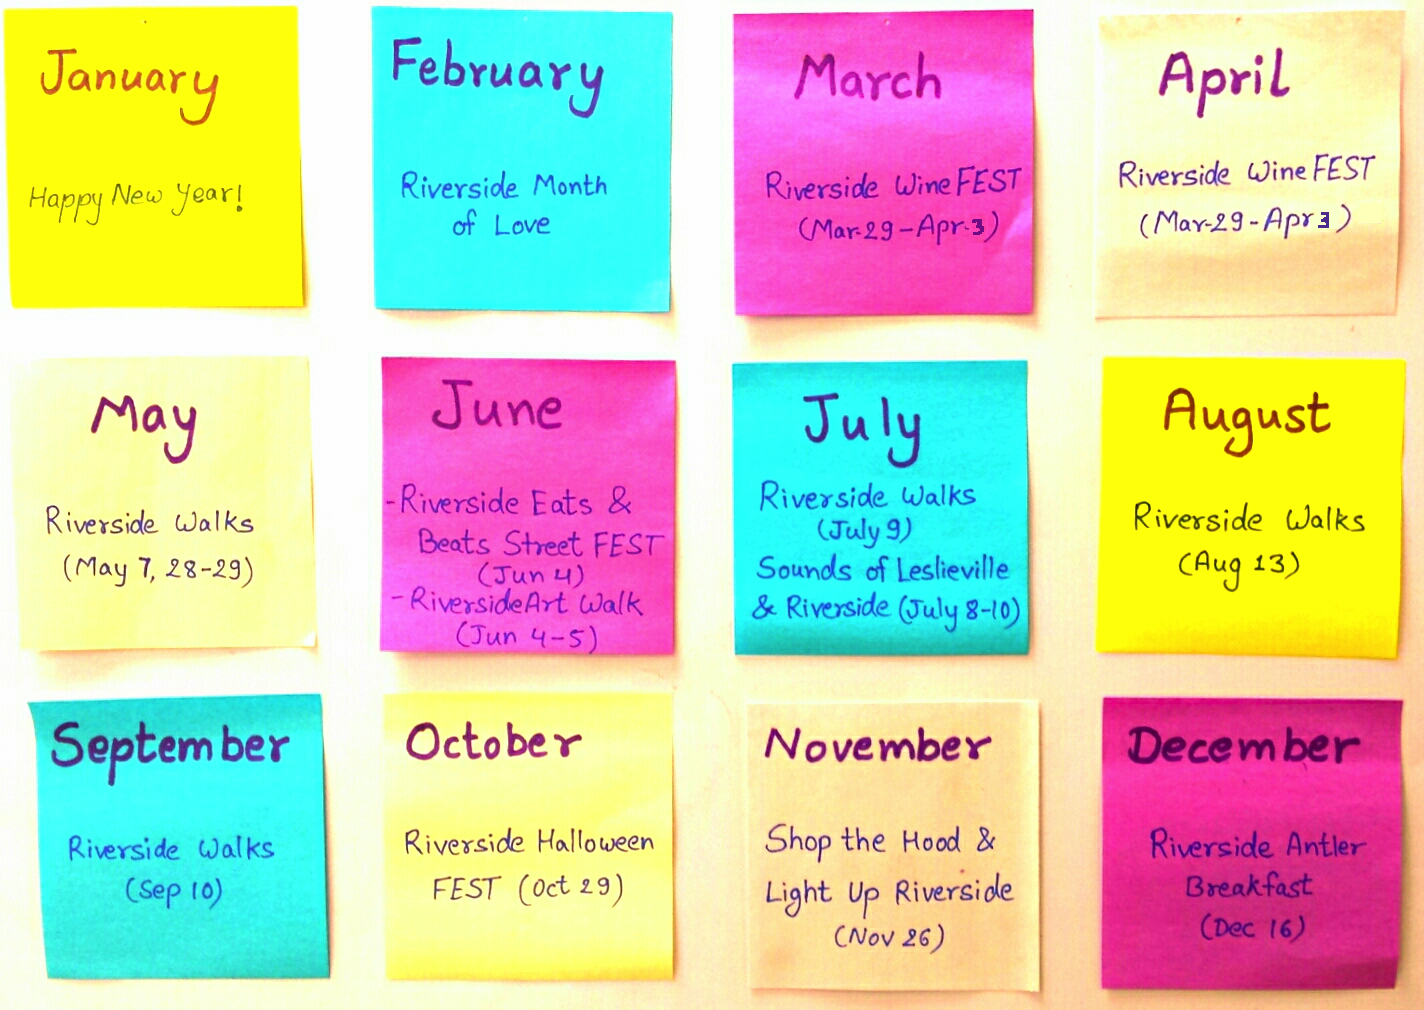 January
Happy New Year!
February
Riverside Month
of Love
March
Riverside WineFEST
(Mar-29-Apr-3)
April
Riverside WineFEST
(Mar-29-Apr 3)
May
Riverside Walks
(May 7, 28-29)
June
-Riverside Eats &
Beats Street FEST
(Jun 4)
-RiversideArt Walk
(Jun 4-5)
July
Riverside Walks
(July 9)
Sounds of Leslieville
& Riverside (July 8-10)
August
Riverside Walks
(Aug 13)
September
Riverside Walks
(Sep 10)
October
Riverside Halloween
FEST (Oct 29)
November
Shop the Hood &
Light Up Riverside
(Nov 26)
December
Riverside Antler
Breakfast
(Dec 16)